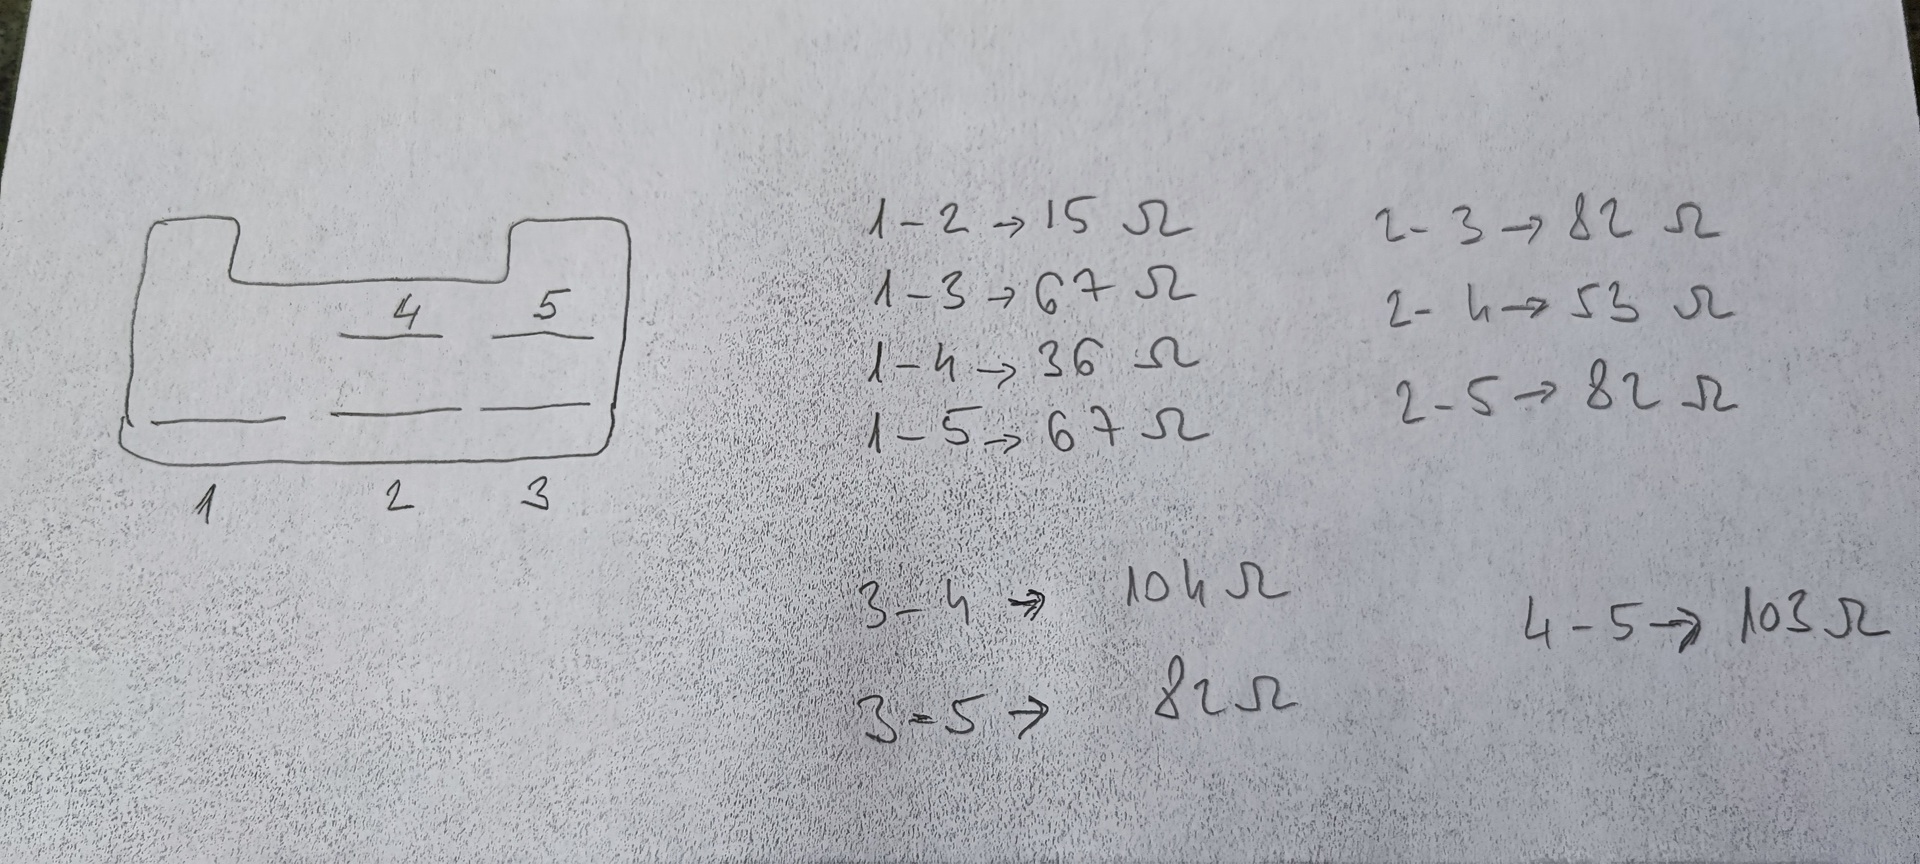 4 5
1 2 3
1-2 → 15 Ω
1-3 → 67 Ω
1-4 → 36 Ω
1-5 → 67 Ω
2-3 → 82 Ω
2-4 → 53 Ω
2-5 → 82 Ω
3-4 → 104 Ω
3-5 → 82 Ω
4-5 → 103 Ω